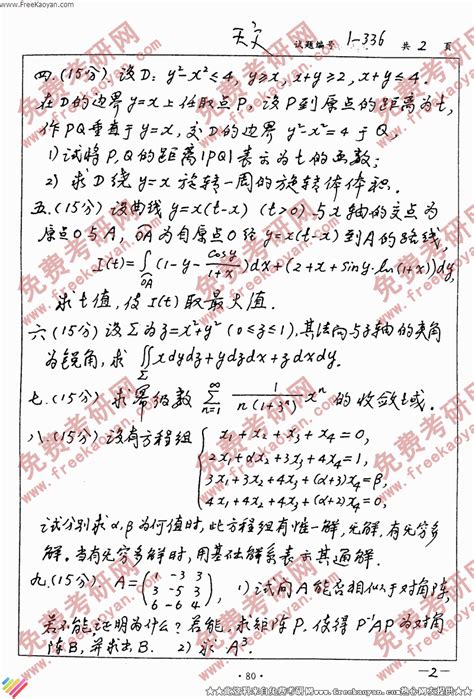 www.FreeKaoyan.com
试题编号 1-336 共 2 页
四.(15分) 设D: y²-x²≤4, y≥x, x+y≥2, x+y≤4.
在D的边界y=x上任取点P, 设P到原点的距离为t,
作PQ垂直于y=x, 交D的边界 y²-x²=4于Q,
1) 试将P,Q的距离|PQ|表示为t的函数;
2) 求D绕y=x旋转一周的旋转体体积.
五.(15分) 设曲线 y=x(t-x) (t>0) 与x轴的交点为
原点O与A, OA为自原点O经y=x(t-x)到A的路线,
I(t)=∫_{OA}(1-y-cosy/(1+x))dx+(2+x+siny·ln(1+x))dy,
求t值, 使I(t)取最大值.
六.(15分) 设Σ为z=x²+y² (0≤z≤1), 其法向与z轴的夹角
为锐角, 求 ∬_Σ xdydz+ydzdx+zdxdy.
七.(15分) 求幂级数 ∑_{n=1}^{∞} 1/(n(1+3ⁿ)) xⁿ 的收敛域.
八.(15分) 设有方程组
x₁+x₂+x₃+x₄=0,
2x₁+αx₂+3x₃+4x₄=1,
3x₁+3x₂+4x₃+(α+3)x₄=β,
4x₁+4x₂+4x₃+(α+2)x₄=0,
试分别求α,β为何值时, 此方程组有惟一解, 无解, 有无穷多
解. 当有无穷多解时, 用基础解系表示其通解.
九.(15分) A=(1 -3 3
3 -5 3
6 -6 4), 1) 试问A能否相似于对角阵
若不能, 证明为什么? 若能, 求矩阵P, 使得P⁻¹AP为对角
阵B, 并求出B. 2) 求A³.
-2-
· 80 ·
免费考研网
www.freekaoyan.com